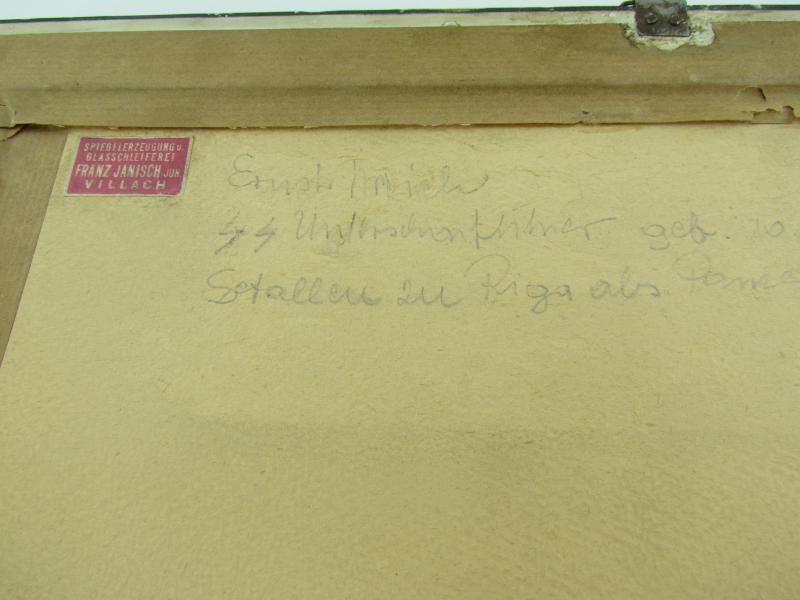 SPIEGELERZEUGUNG u.
GLASSCHLEIFEREI
FRANZ JANISCH JUN.
VILLACH
Ernst
SS Unterscharführer geb. 10.
Gefallen zu Riga als